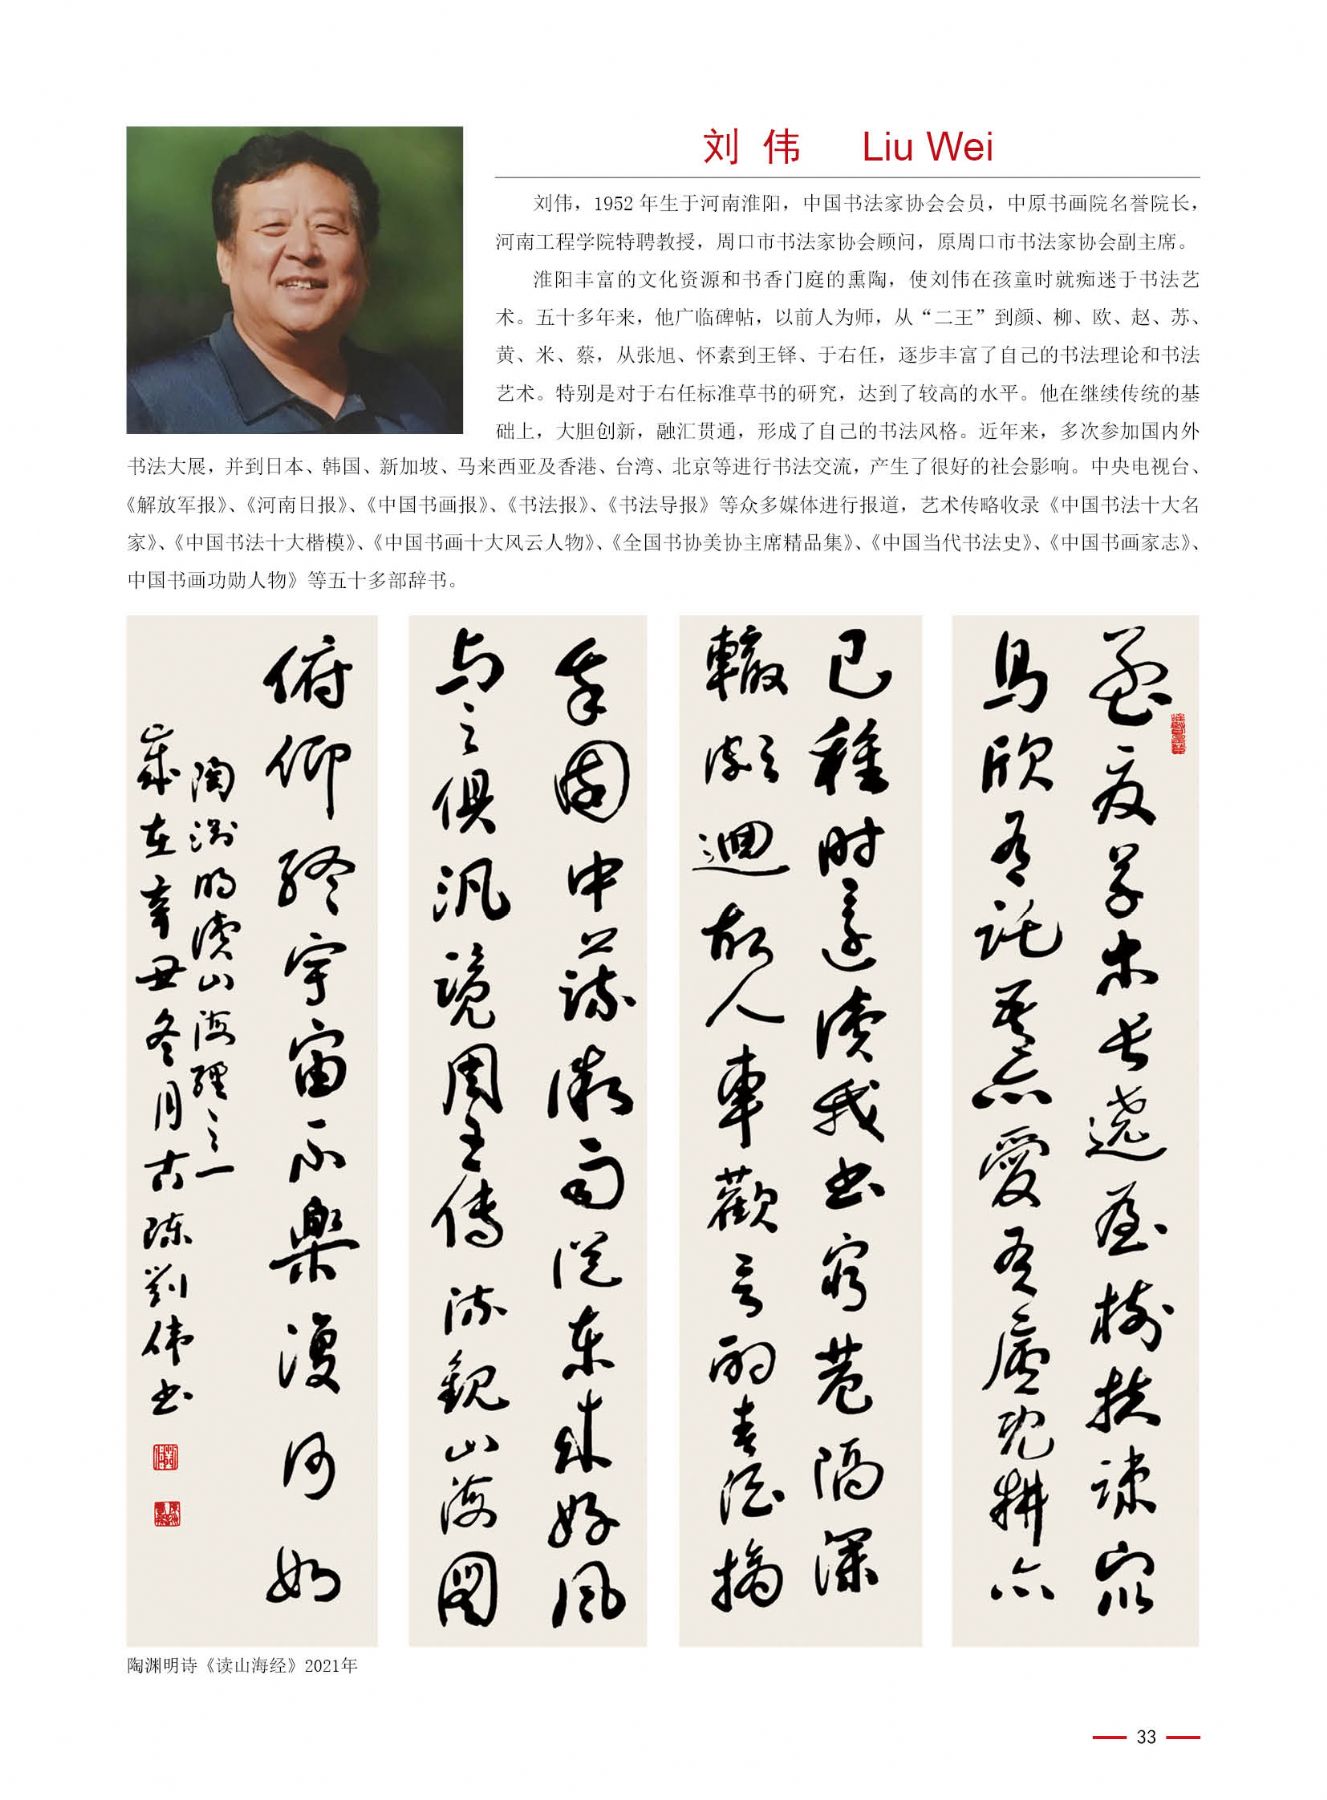 刘 伟 Liu Wei
刘伟，1952 年生于河南淮阳，中国书法家协会会员，中原书画院名誉院长，
河南工程学院特聘教授，周口市书法家协会顾问，原周口市书法家协会副主席。
淮阳丰富的文化资源和书香门庭的熏陶，使刘伟在孩童时就痴迷于书法艺
术。五十多年来，他广临碑帖，以前人为师，从“二王”到颜、柳、欧、赵、苏、
黄、米、蔡，从张旭、怀素到王铎、于右任，逐步丰富了自己的书法理论和书法
艺术。特别是对于右任标准草书的研究，达到了较高的水平。他在继续传统的基
础上，大胆创新，融汇贯通，形成了自己的书法风格。近年来，多次参加国内外
书法大展，并到日本、韩国、新加坡、马来西亚及香港、台湾、北京等进行书法交流，产生了很好的社会影响。中央电视台、
《解放军报》、《河南日报》、《中国书画报》、《书法报》、《书法导报》等众多媒体进行报道，艺术传略收录《中国书法十大名
家》、《中国书法十大楷模》、《中国书画十大风云人物》、《全国书协美协主席精品集》、《中国当代书法史》、《中国书画家志》、
中国书画功勋人物》等五十多部辞书。
孟夏草木长遶屋树扶疎众
鸟欣有託吾亦愛吾廬既耕亦
已種时還读我书穷巷隔深
轍頗迴故人車歡言酌春酒摘
我園中蔬微雨從东来好风
与之俱汎覽周王傳流觀山海图
俯仰終宇宙不樂復何如
陶渊明读山海經之一
歲在辛丑冬月古陈劉偉书
陶渊明诗《读山海经》2021年
33